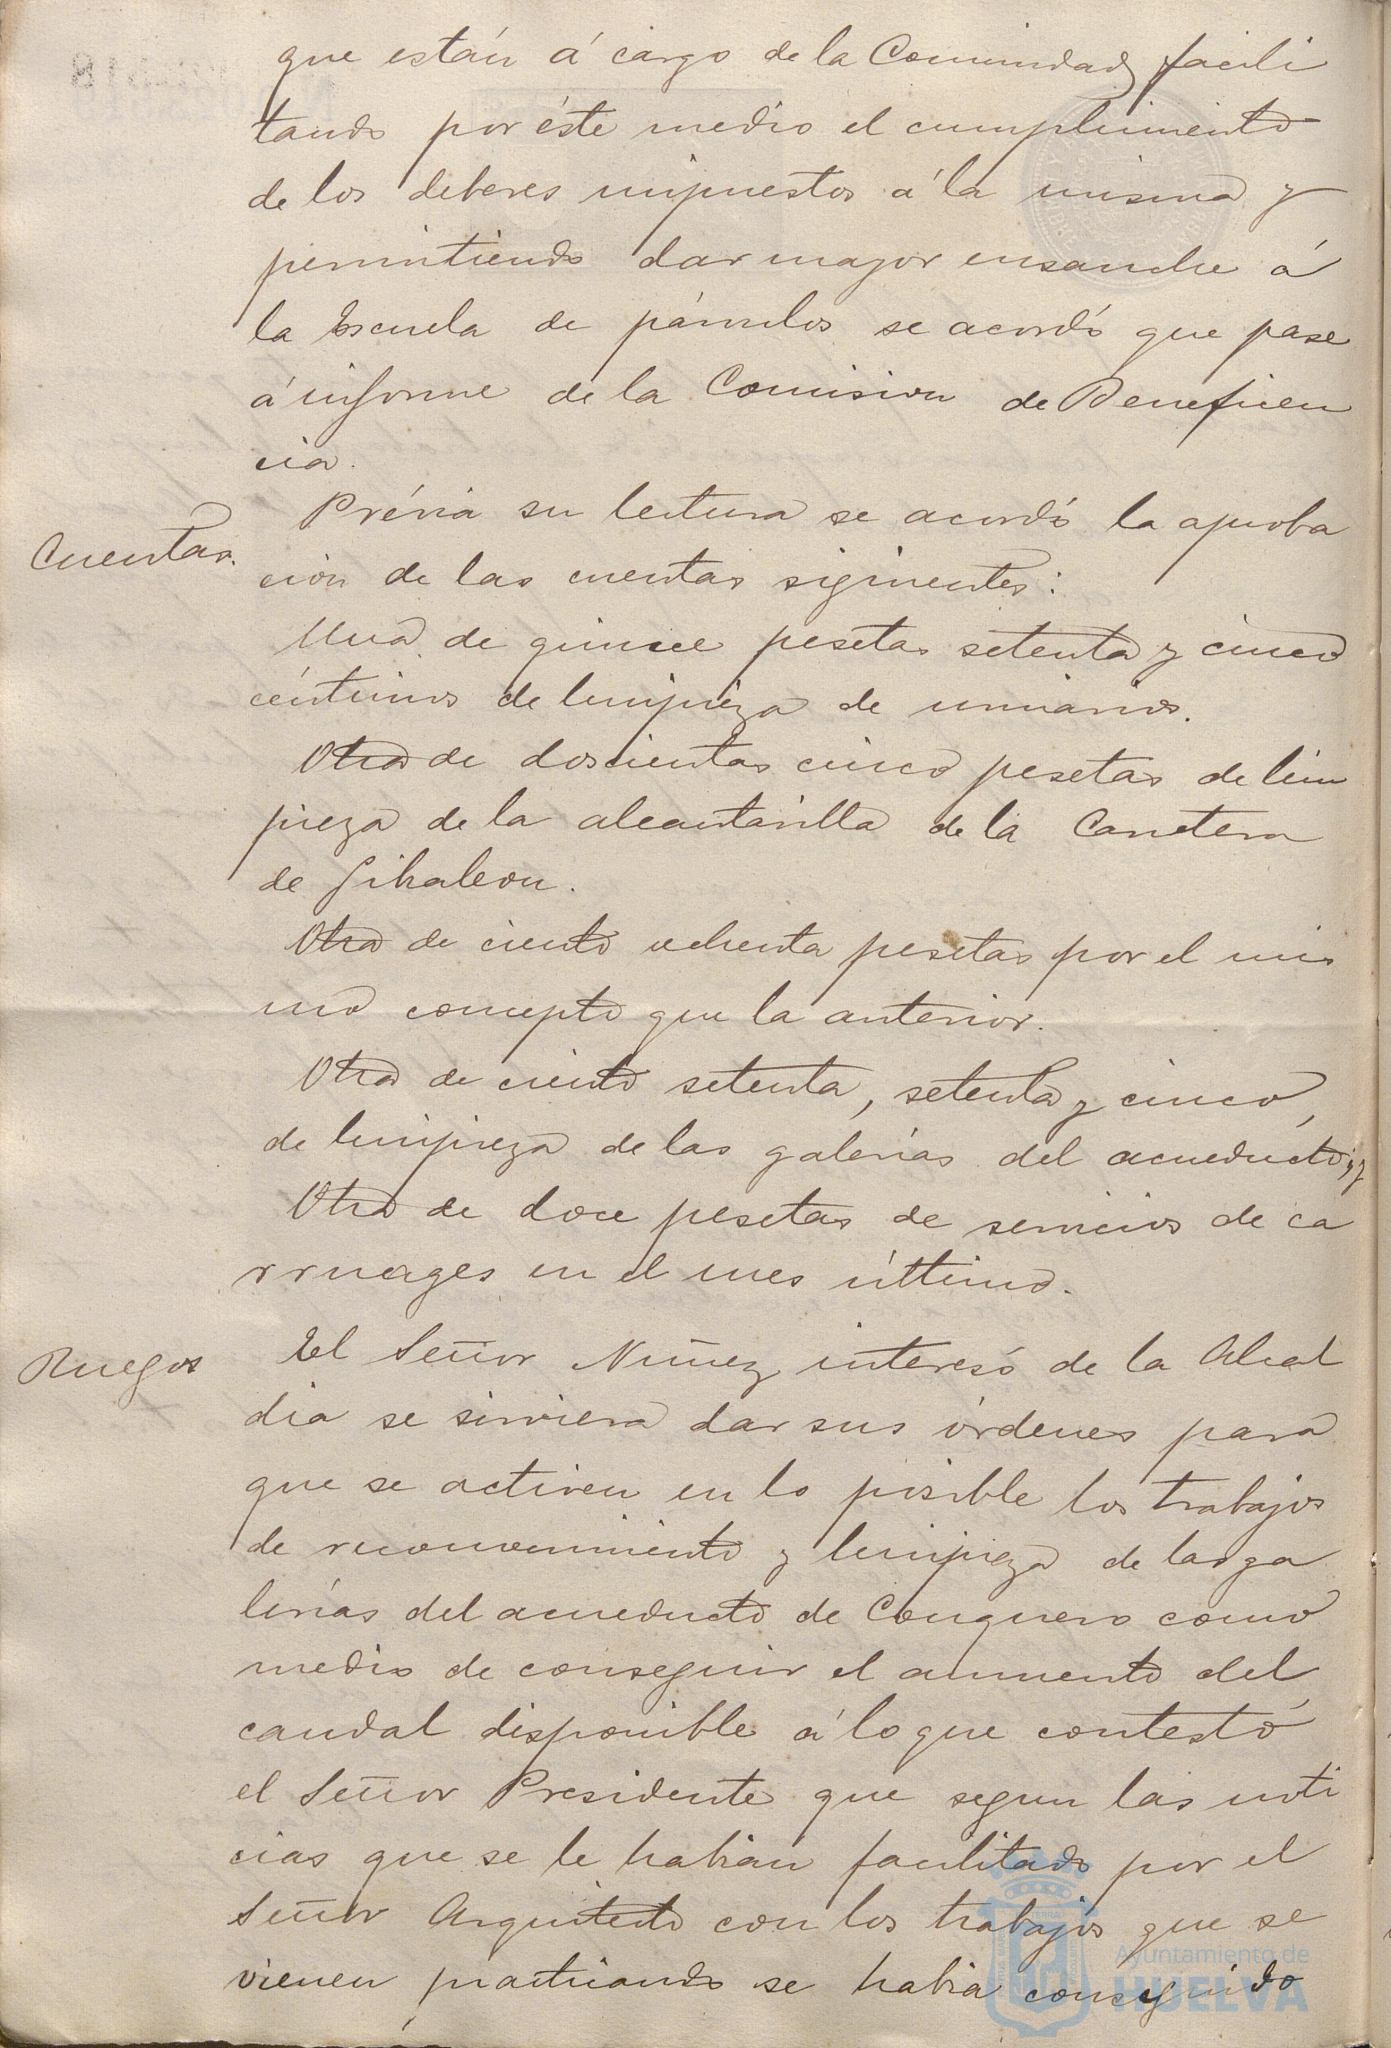 que están á cargo de la Comunidad, facili
tando por éste medio el cumplimiento
de los deberes impuestos á la misma y
permitiendo dar mayor ensanche á
la Escuela de párvulos se acordó que pase
á informe de la Comision de Beneficen
cia.
Prévia su lectura se acordó la aproba
Cuentas.
ción de las cuentas siguientes:
Una de quince pesetas setenta y cinco
céntimos de limpieza de urinarios.
Otra de doscientas cinco pesetas de lim
pieza de la alcantarilla de la Carretera
de Gibraleon.
Otra de ciento ochenta pesetas por el mis
mo concepto que la anterior.
Otra de ciento setenta, setenta y cinco,
de limpieza de las galerías del acueducto; y
Otra de doce pesetas de servicios de ca
rruages en el mes último.
Ruegos
El Señor Nuñez interesó de la Alcal
dia se sirviera dar sus órdenes para
que se activen en lo posible los trabajos
de reconocimiento y limpieza de las ga
lerías del acueducto de Conquero como
medio de conseguir el aumento del
caudal disponible á lo que contestó
el Señor Presidente que segun las noti
cias que se le habian facilitado por el
Señor Arquitecto con los trabajos que se
vienen practicando se habia conseguido
Ayuntamiento de
HUELVA